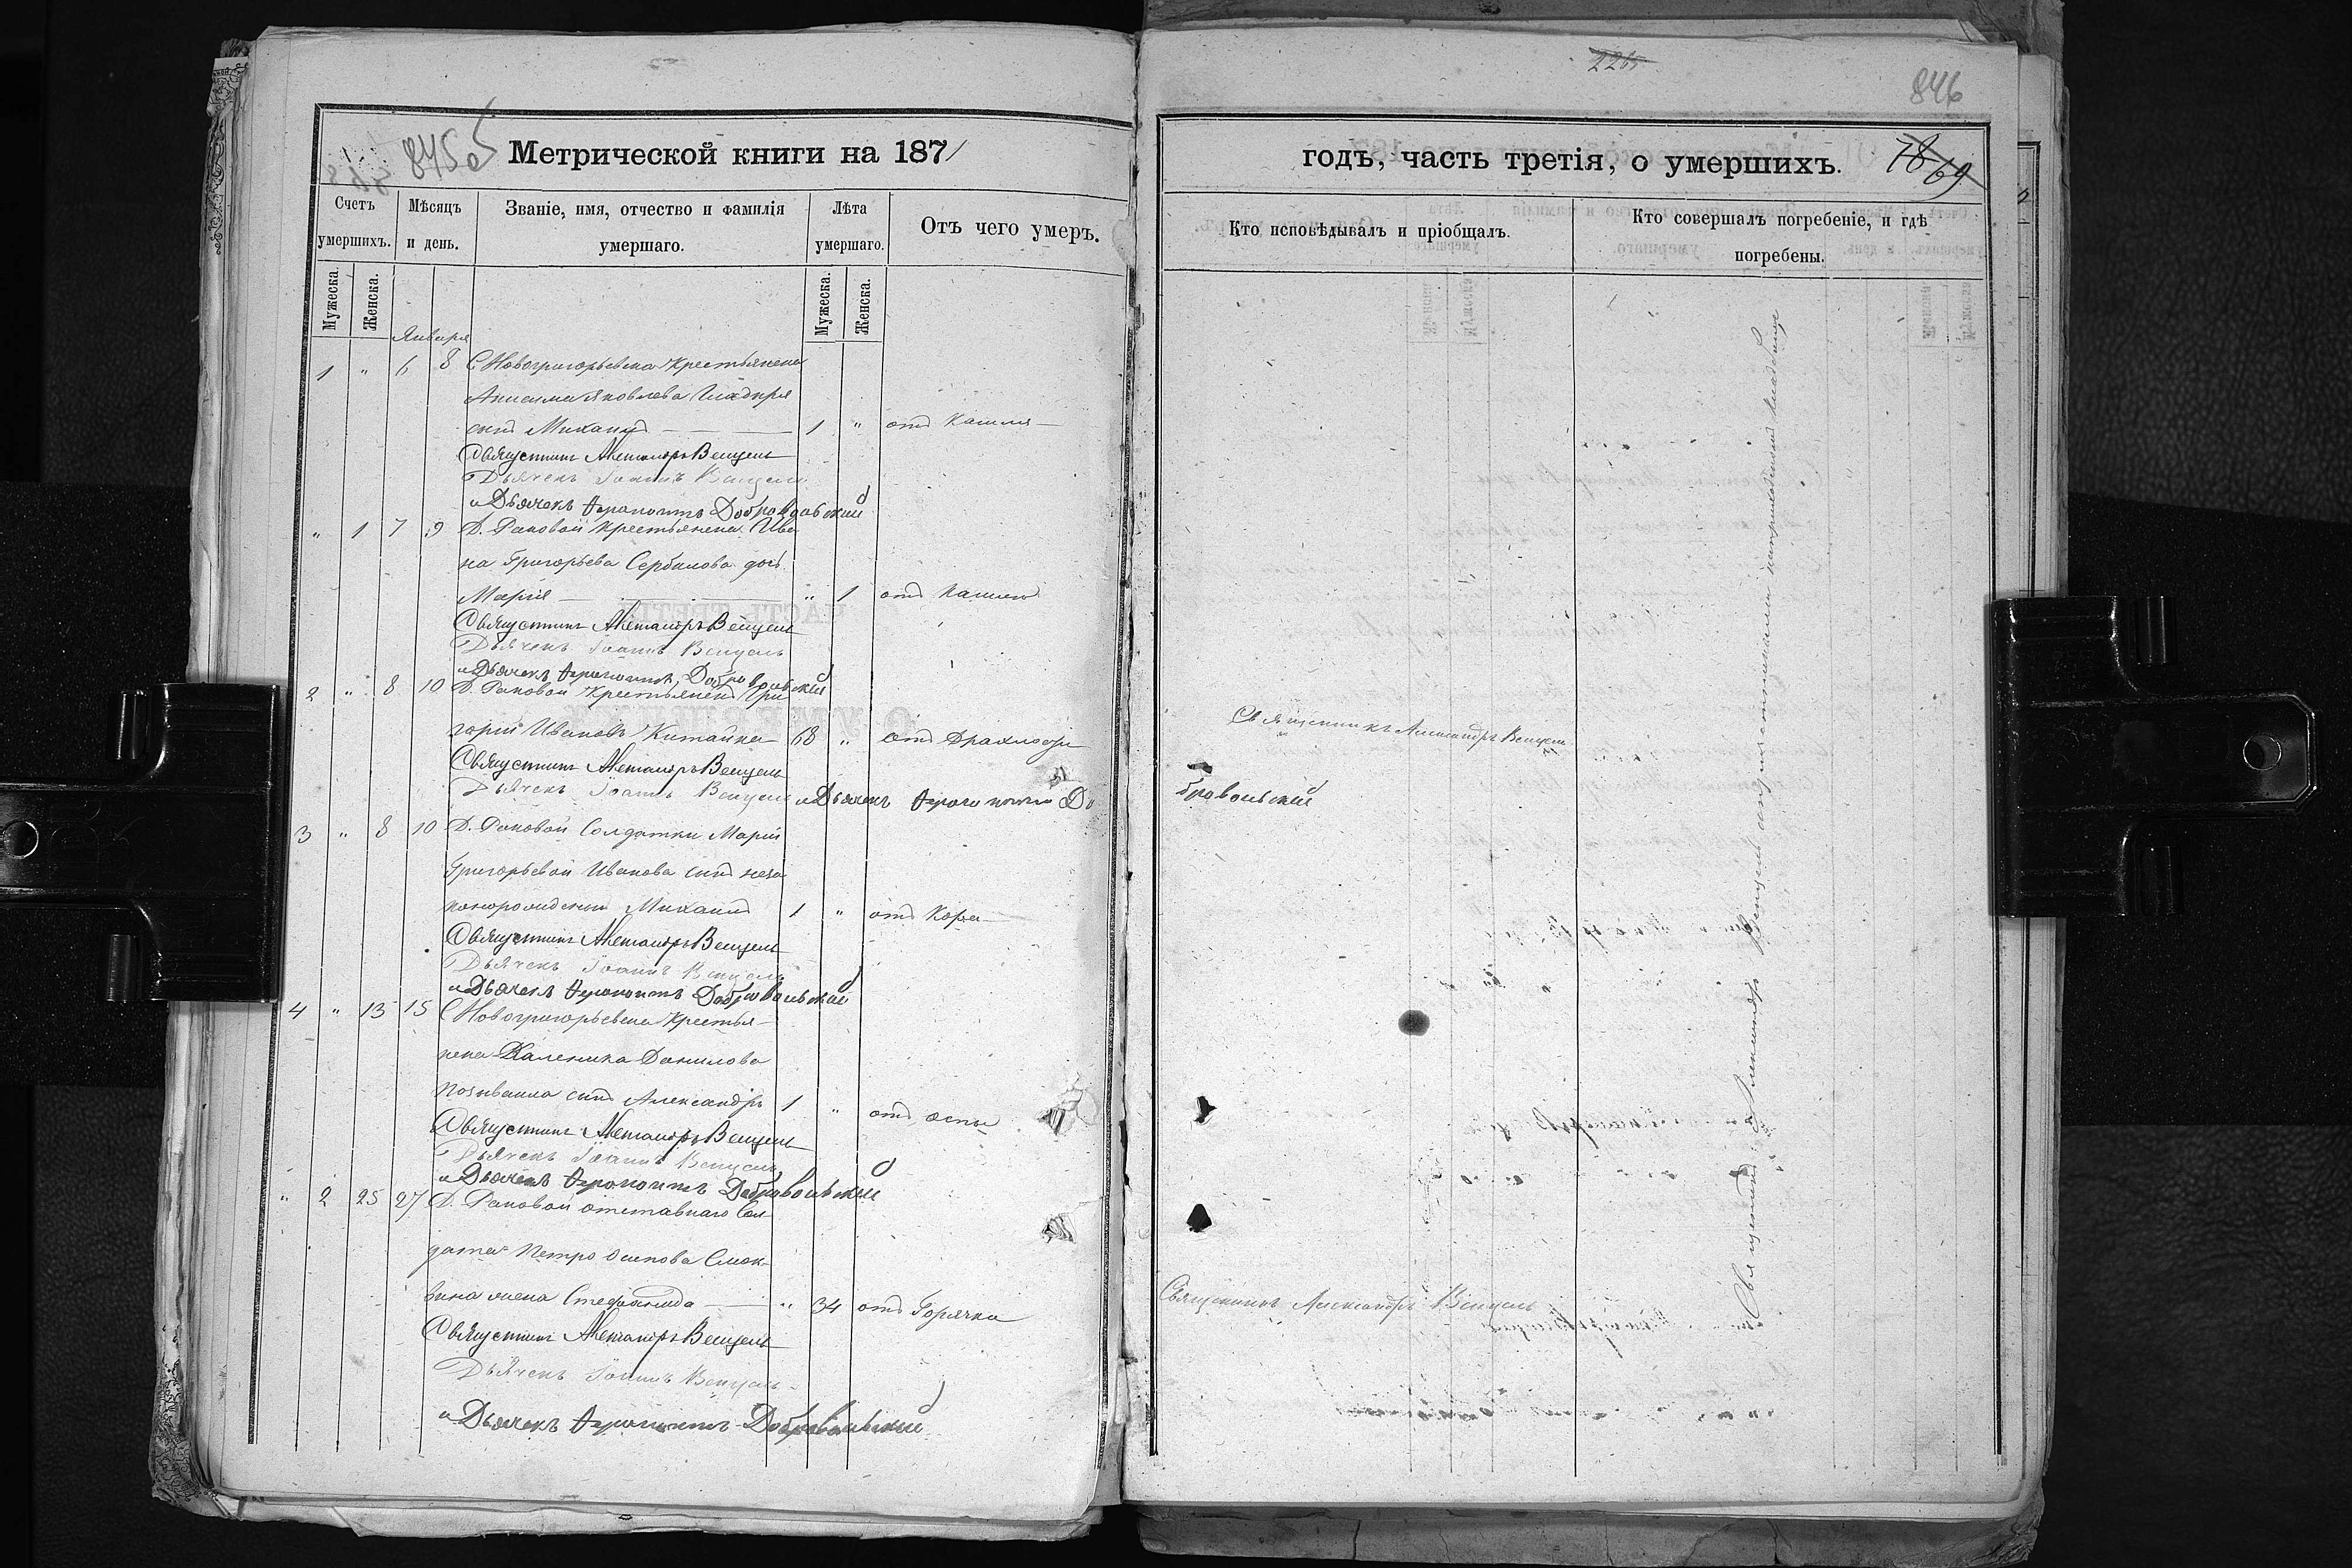 845об
Метрической книги на 1871
Счетъ умершихъ.
Мѣсяцъ и день.
Званіе, имя, отчество и фамилія умершаго.
Лѣта умершаго.
Отъ чего умеръ.
Мужеска.
Женска.
Мужеска.
Женска.
Января
1 " 6 8 С Новогригорьевка Крестьянина
Анисима Яковлева
сынъ Михаилъ 1 " отъ Кашля
Священникъ Александръ Венцель
Дьячекъ Іоаннъ Венцель
и Дьячекъ Ферапонтъ Добровольскій
" 1 7 9 Д. Раковой Крестьянина Ива
на Григорьева Сербинова дочь
Марія " 1 отъ Кашлю
Священникъ Александръ Венцель
Дьячекъ Іоаннъ Венцель
и Дьячекъ Ферапонтъ Добровольскій
2 " 8 10 Д. Раковой Крестьянинъ Гри
горій Ивановъ Китайка 68 " отъ Драхлости
Священникъ Александръ Венцель
Дьячекъ Іоаннъ Венцель и Дьячекъ Ферапонтъ До
3 " 8 10 Д. Раковой Солдатки Маріи
Григорьевой Иванова сынъ неза
конорожденный Михаилъ 1 " отъ Кора
Священникъ Александръ Венцель
Дьячекъ Іоаннъ Венцель
и Дьячекъ Ферапонтъ Добровольскій
4 " 13 15 С Новогригорьевка Крестья
нина Каленика Данилова
сынъ Александръ 1 " отъ оспы
Священникъ Александръ Венцель
Дьячекъ Іоаннъ Венцель
и Дьячекъ Ферапонтъ Добровольскій
" 2 25 27 Д. Раковой отставнаго Сол
дата Петра Осипова
жена Стефанида " 34 отъ Горячка
Священникъ Александръ Венцель
Дьячекъ Іоаннъ Венцель
и Дьячекъ Ферапонтъ Добровольскій
846
годъ, часть третія, о умершихъ.
69
Кто исповѣдывалъ и пріобщалъ.
Кто совершалъ погребеніе, и гдѣ погребены.
Священникъ Александръ Венцель
бровольскій
Священникъ Александръ Венцель
Священникъ Александръ Венцель на приходскомъ кладбище